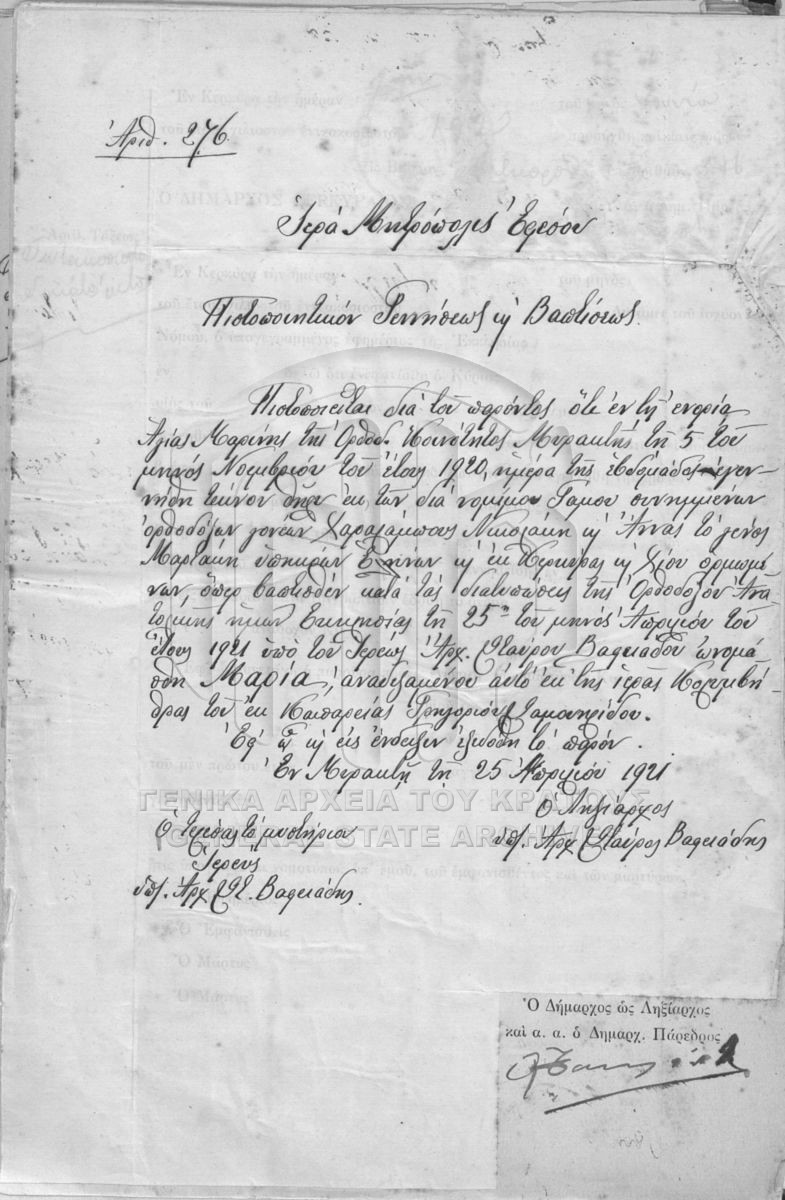 Ἀριθ. 276.
Ἱερὰ Μητρόπολις Ἐφέσου
Πιστοποιητικὸν Γεννήσεως ϗ Βαπτίσεως.
Πιστοποιεῖται διὰ τοῦ παρόντος ὅτι ἐν τῇ ἐνορίᾳ
Ἁγίας Μαρίνης τῆς Ὀρθοδ. Κοινότητος Μυρακτῆς τῇ 5 τοῦ
μηνὸς Νοεμβρίου τοῦ ἔτους 1920, ἡμέρᾳ τῆς ἑβδομάδος ἐγεν-
νήθη τέκνον θῆλυ ἐκ τῶν διὰ νομίμου Γάμου συνημμένων
ὀρθοδόξων γονέων Χαραλάμπους Νικολάκη ϗ Ἄννας τὸ γένος
Μαρτάκη ὑπηκόων Ἑλλήνων ϗ ἐκ Κερκύρας ϗ Χίου ὁρμωμέ-
νων, ὅπερ βαπτισθὲν κατὰ τὰς διατυπώσεις τῆς Ὀρθοδόξου Ἀνα-
τολικῆς ἡμῶν Ἐκκλησίας τῇ 25ῃ τοῦ μηνὸς Ἀπριλίου τοῦ
ἔτους 1921 ὑπὸ τοῦ Ἱερέως Ἀρχ. Σταύρου Βαφειάδου ὠνομά-
σθη Μαρία, ἀναδεξαμένου αὐτὸ ἐκ τῆς ἱερᾶς Κολυμβή-
θρας τοῦ ἐκ Καισαρείας Γρηγορίου
Ἐφ' ᾧ ϗ εἰς ἔνδειξιν ἐξεδόθη τὸ παρόν.
Ἐν Μυρακτῇ τῇ 25 Ἀπριλίου 1921
Ὁ Ληξίαρχος
ὑπ. Ἀρχ Σταῦρος Βαφειάδης
Ὁ τελέσας τὸ μυστήριον
Ἱερεὺς
ὑπ. Ἀρχ Στ. Βαφειάδης
ΓΕΝΙΚΑ ΑΡΧΕΙΑ ΤΟΥ ΚΡΑΤΟΥΣ
GENERAL STATE ARCHIVES
Ὁ Δήμαρχος ὡς Ληξίαρχος
καὶ α. α. ὁ Δημαρχ. Πάρεδρος